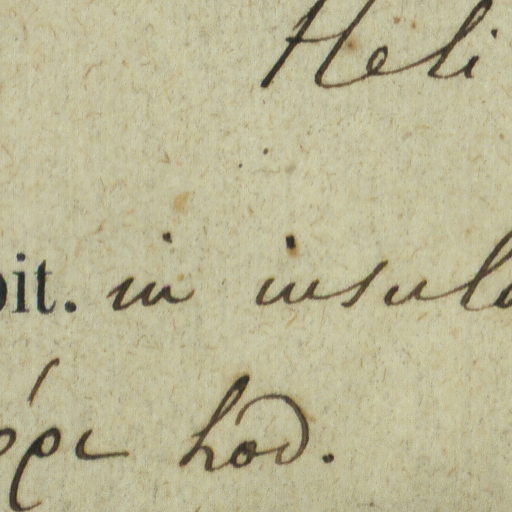 Heli
bit. in insula
hod.